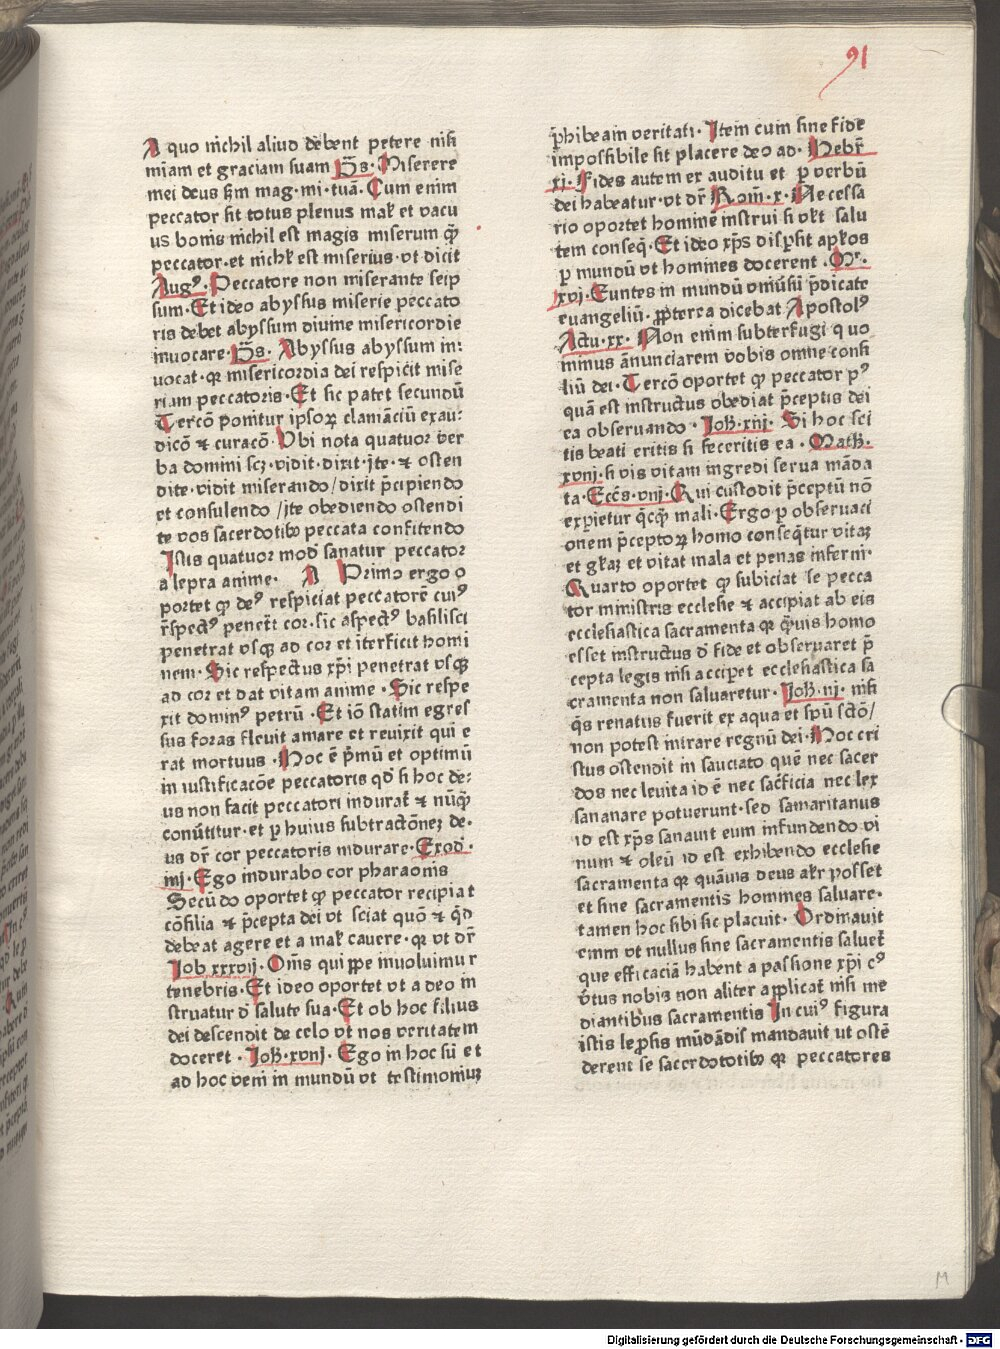 91
A quo nichil aliud debent petere nisi
mīam et graciam suam p̄s. Miserere
mei deus scd̄m mag. mi. tuā. Cum enim
peccator sit totus plenus malꝭ et vacu
us bonis nichil est magis miserum qͣ̄
peccator. et nichꝭ est miserius. vt dicit
Augꝰ. Peccatore non miserante seip
sum. Et ideo abyssus miserie peccato
ris debet abyssum diuine misericordie
inuocare. p̄s. Abyssus abyssum in:
uocat. qꝛ misericordia dei respicit mise
riam peccatoris. Et sic patet secundū
Tercō ponitur ipsoꝝ clamāciū exau:
dicō ⁊ curacō. Vbi nota quatuor ver
ba domini scꝫ. vidit. dixit. jte. ⁊ osten
dite. vidit miserando / dixit p̄cipiendo
et consulendo / jte obediendo ostendi
te vos sacerdotibꝰ peccata confitendo
Istis quatuor mod̄ sanatur peccator
a lepra anime. A Primo ergo o
portet ꝙ deꝰ respiciat peccatorē cuiꝰ
r̄spectꝰ penetrꝭ cor. sic aspectꝰ basilisci
penetrat vsqꝫ ad cor et īterficit homi
nem. Sic respectus xp̄i penetrat vsqꝫ
ad cor et dat vitam anime. Sic respe
xit dominꝰ petrū. Et iō statim egres
sus foras fleuit amare et reuixit qui e
rat mortuus. Hoc ē p̄mū et optimū
in iustificacōe peccatoris qd̄ si hoc de:
us non facit peccatori induratꝭ ⁊ nūqͣ̄
conūtitur. et ꝑ huius subtractōneꝫ de.
us dr̄ cor peccatoris indurare. Exod.
iiij. Ego indurabo cor pharaonis
Secūdo oportet ꝙ peccator recipiat
cōsilia ⁊ p̄cepta dei vt sciat quō ⁊ qd̄
debeat agere et a malꝭ cauere. qꝛ vt dr̄
Iob xxxvij. Om̄s qui ꝓpe inuoluimur
tenebris. Et ideo oportet vt a deo in
struatur d̄ salute sua. Et ob hoc filius
dei descendit de celo vt nos veritatem
doceret. Joh̄. xviij. Ego in hoc sū et
ad hoc veni in mundū vt testimoniuꝫ
p̄hibeam veritati. Item cum sine fide
impossibile sit placere deo ad. Hebr̄
xi. Fides autem ex auditu et ꝑ verbū
dei habeatur. vt dr̄ Rom̄. x. Necessa
rio oportet hominē instrui si vlt salu
tem conseq̄. Et ideo xp̄s disꝑsit apl̄os
ꝑ mundū vt homines docerent. Mr.
xvj. Euntes in mundū vniūsū p̄dicate
euangeliū. ꝓpterea dicebat Apostolꝰ
Actu. xx. Non enim subterfugi quo
minus ānunciarem vobis omne consi
liū dei. Tercō oportet ꝙ peccator pꝰ
quā est instructus obediat p̄ceptis dei
ea obseruando. Joh̄. xiij. Si hoc sci
tis beati eritis si feceritis ea. Math̄.
xviij. si vis vitam ingredi serua māda
ta. Eccs̄. viij. Qui custodit p̄ceptū nō
experietur qͥcqͣ̄ mali. Ergo ꝑ obseruaci
onem p̄ceptoꝝ homo conseq̄tur vitaꝫ
et gr̄aꝫ et vitat mala et penas inferni.
Quarto oportet ꝙ subiciat se pecca
tor ministris ecclesie ⁊ accipiat ab eis
ecclesiastica sacramenta qꝛ qͣ̄uis homo
esset instructus d̄ fide et obseruaret p̄
cepta legis nisi acciperet ecclesiastica sa
cramenta non saluaretur. Joh̄. iij. nisi
qͥs renatus fuerit ex aqua et spū sctō /
non potest intrare regnū dei. Hoc cri
stus ostendit in sauciato quē nec sacer
dos nec leuita id ē nec sac̄ficia nec lex
sanare potuerunt. sed samaritanus
id est xp̄s sanauit eum infundendo vi
num ⁊ oleū id est exhibendo ecclesie
sacramenta qꝛ quāuis deus alr̄ posset
et sine sacramentis homines saluare.
tamen hoc sibi sic placuit. Ordinauit
enim vt nullus sine sacramentis saluetꝭ
que efficaciā habent a passione xp̄i cꝰ
v̄tus nobis non aliter applicatꝭ nisi me
diantibus sacramentis In cuiꝰ figura
istis leprosis mūdādis mandauit ut ostē
derent se sacerdototibꝰ qꝛ peccatores
M
Digitalisierung gefördert durch die Deutsche Forschungsgemeinschaft - DFG